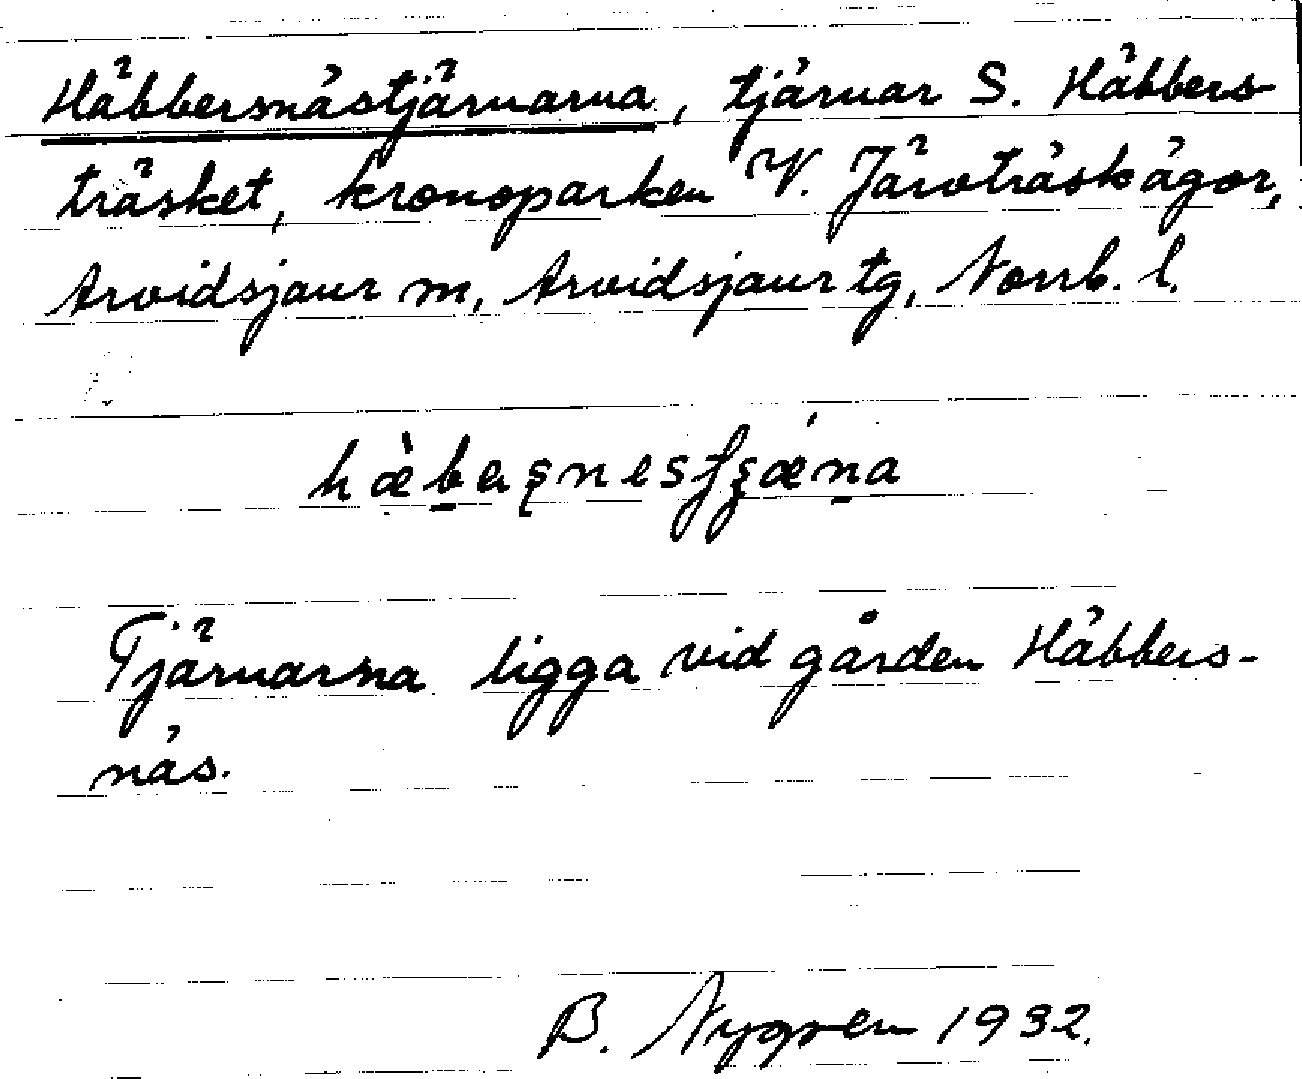 Häbbersnästjärnarna, tjärnar S. Häbbers-
träsket, kronoparken V. Järvträskägor,
Arvidsjaur m, Arvidsjaur tg, Norrb. l.
Tjärnarna ligga vid gården Häbbers-
näs.
B. Nygren 1932.